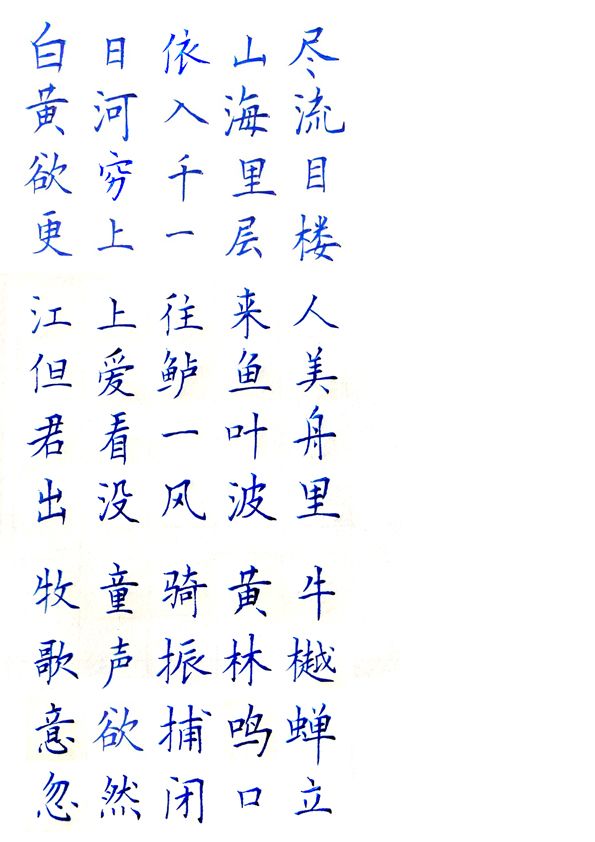 白日依山尽
黄河入海流
欲穷千里目
更上一层楼
江上往来人
但爱鲈鱼美
君看一叶舟
出没风波里
牧童骑黄牛
歌声振林樾
意欲捕鸣蝉
忽然闭口立